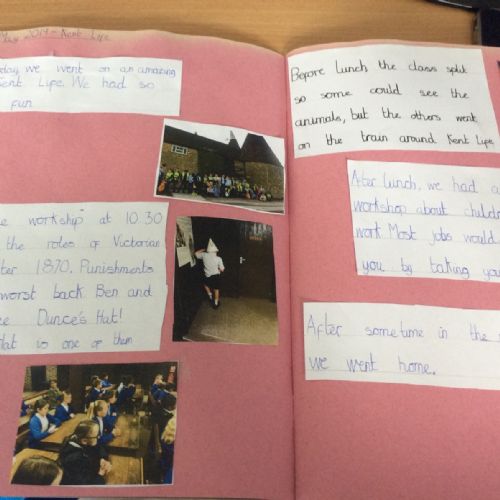 May 2014 - Kent Life
we went on an amazing
Kent Life. We had so
fun
workship at 10.30
the roles of Victorian
1870. Punishments
worst back Ben and
Dunce's Hat!
is one of them
Before Lunch, the class split
so some could see the
animals, but the others went
on the train around Kent Life
After Lunch, we had a
workshop about
work. Most jobs would
you by taking
After sometime in the
we went home.